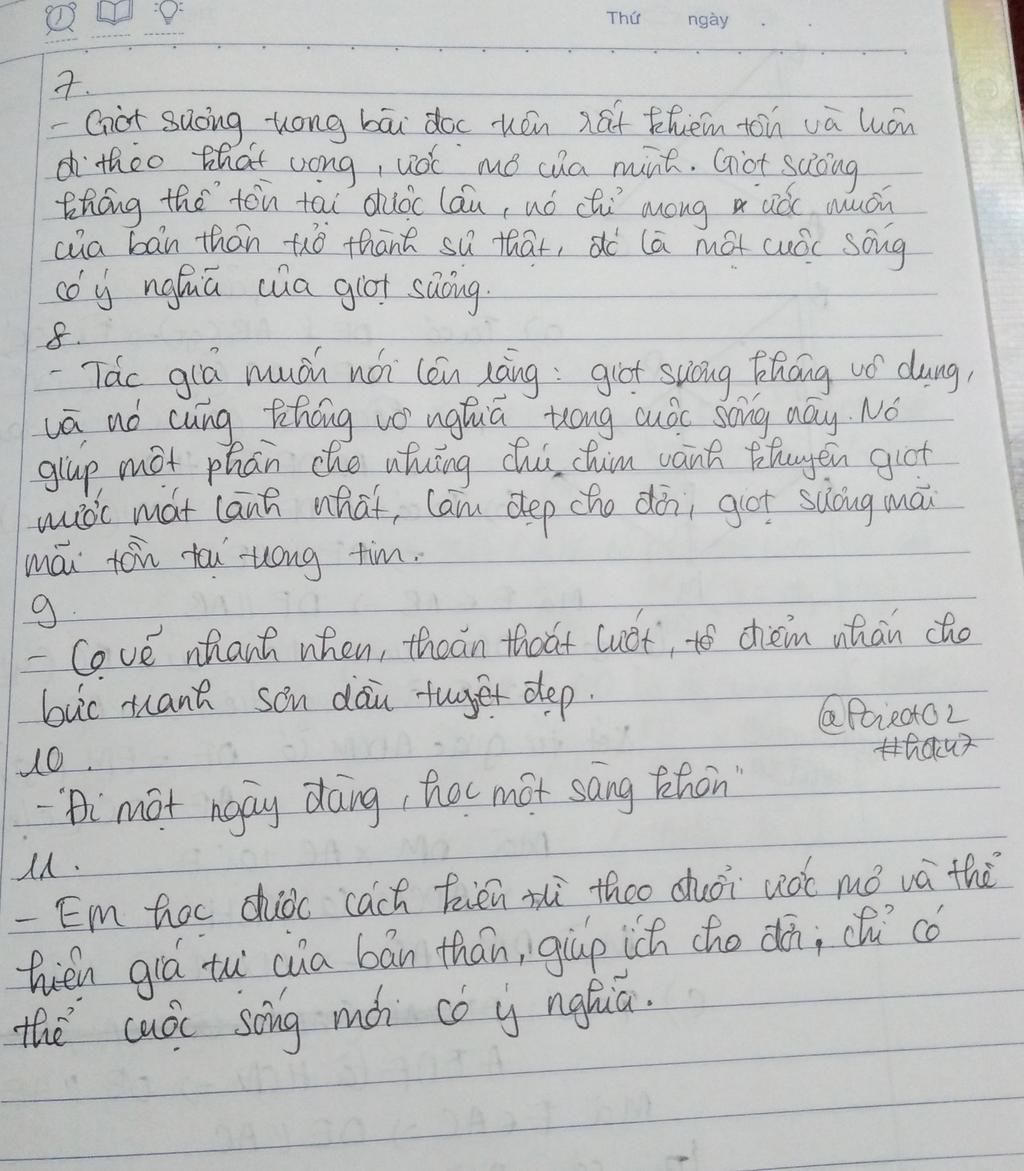 Thứ ngày . .
7.
- Giọt sương trong bài đọc trên rất khiêm tốn và luôn
đi theo khát vọng, ước mơ của mình. Giọt sương
không thể tồn tại được lâu, nó chỉ mong ước muốn
của bản thân trở thành sự thật, đó là một cuộc sống
có ý nghĩa của giọt sương.
8.
- Tác giả muốn nói lên rằng: giọt sương không vô dụng,
và nó cũng không vô nghĩa trong cuộc sống này. Nó
giúp một phần cho những chú chim vành khuyên giọt
nước mát lành nhất, làm đẹp cho đời, giọt sương mãi
mãi tồn tại trong tim.
9.
- Cọ vẽ nhanh nhẹn, thoăn thoắt lướt, tô điểm nhấn cho
bức tranh sơn dầu tuyệt đẹp.
10.
- "Đi một ngày đàng, học một sàng khôn"
11.
- Em học được cách kiên trì theo đuổi ước mơ và thể
hiện giá trị của bản thân, giúp ích cho đời, chỉ có
thế cuộc sống mới có ý nghĩa.